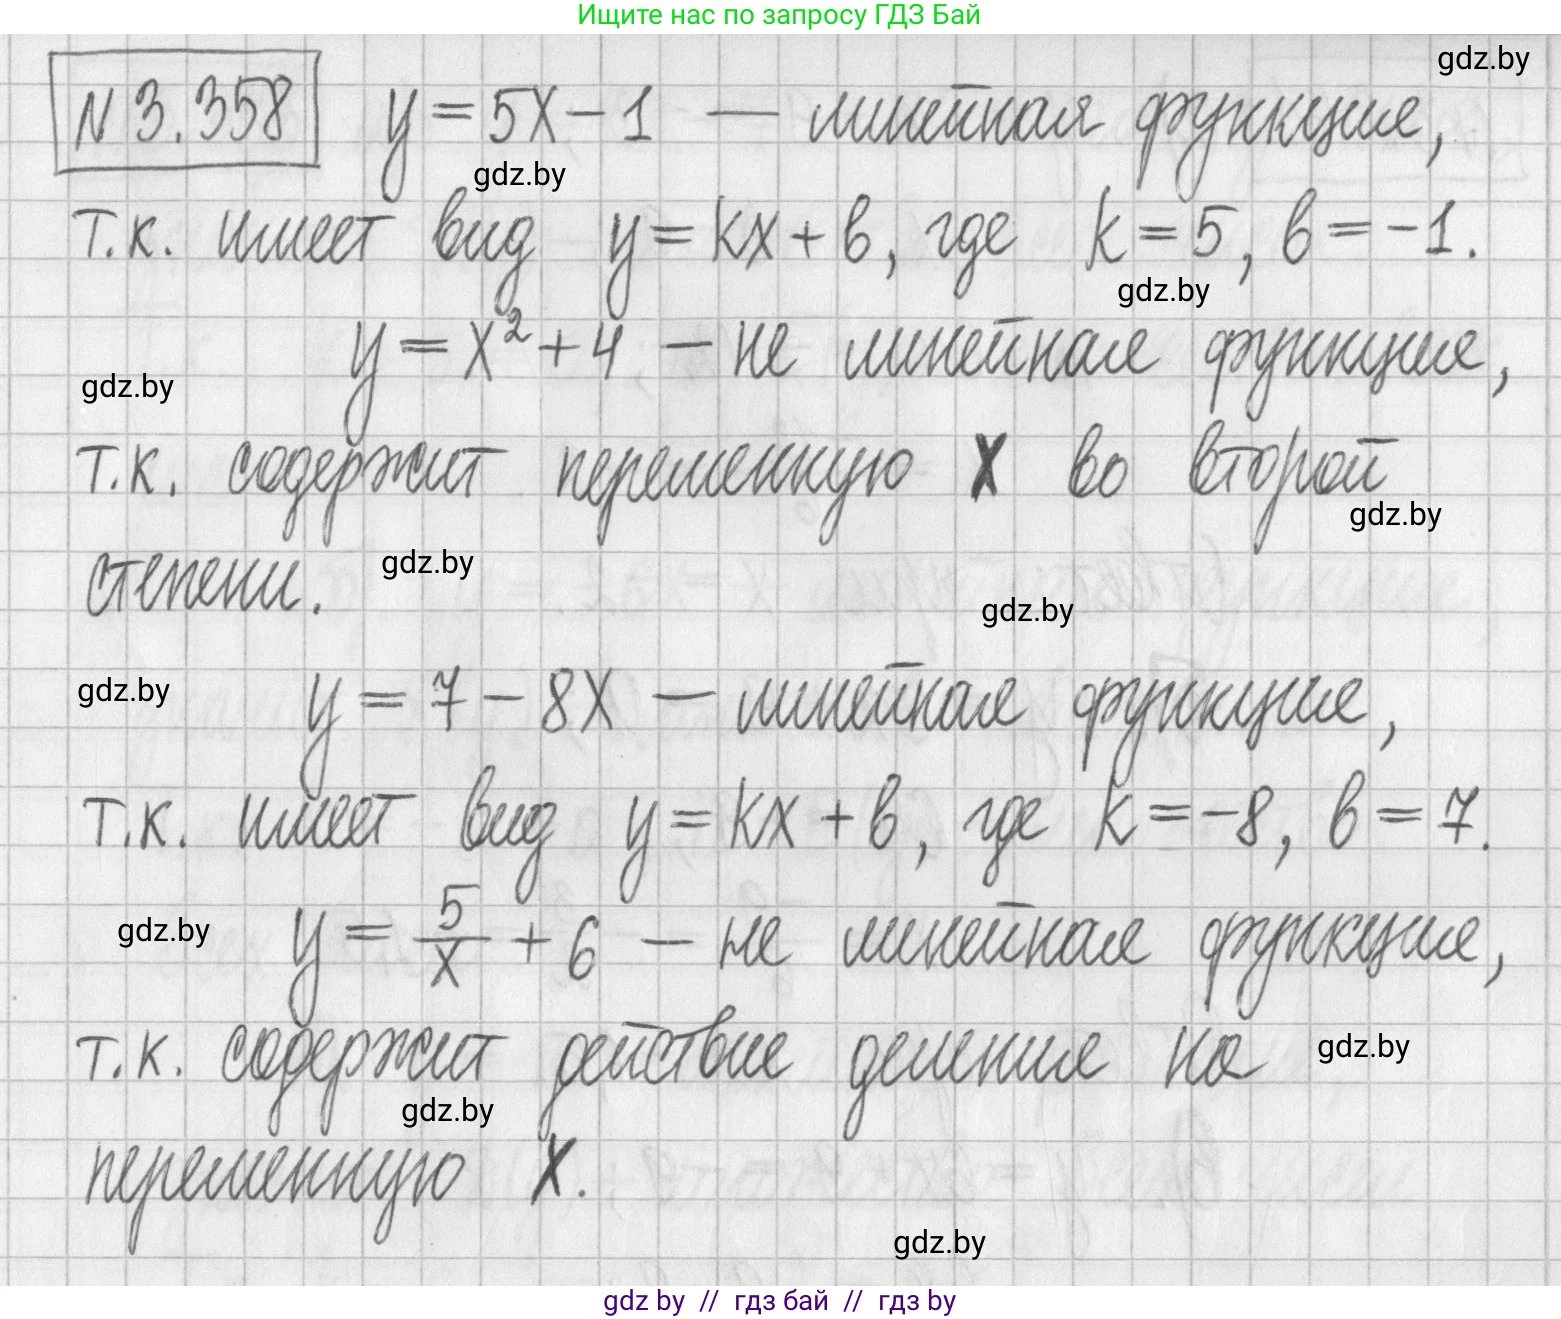 Ищите нас по запросу ГДЗ Бай
gdz.by
N 3.358 y = 5x - 1 — линейная функция,
gdz.by
т.к. имеет вид y = kx + b, где k = 5, b = -1.
gdz.by
y = x² + 4 — не линейная функция,
gdz.by
т.к. содержит переменную x во второй
gdz.by
степени.
gdz.by
gdz.by
gdz.by
y = 7 - 8x — линейная функция,
т.к. имеет вид y = kx + b, где k = -8, b = 7.
gdz.by
y = 5/x + 6 — не линейная функция,
т.к. содержит действие деления на
gdz.by
gdz.by
переменную x.
gdz.by
gdz by // гдз бай // гдз by